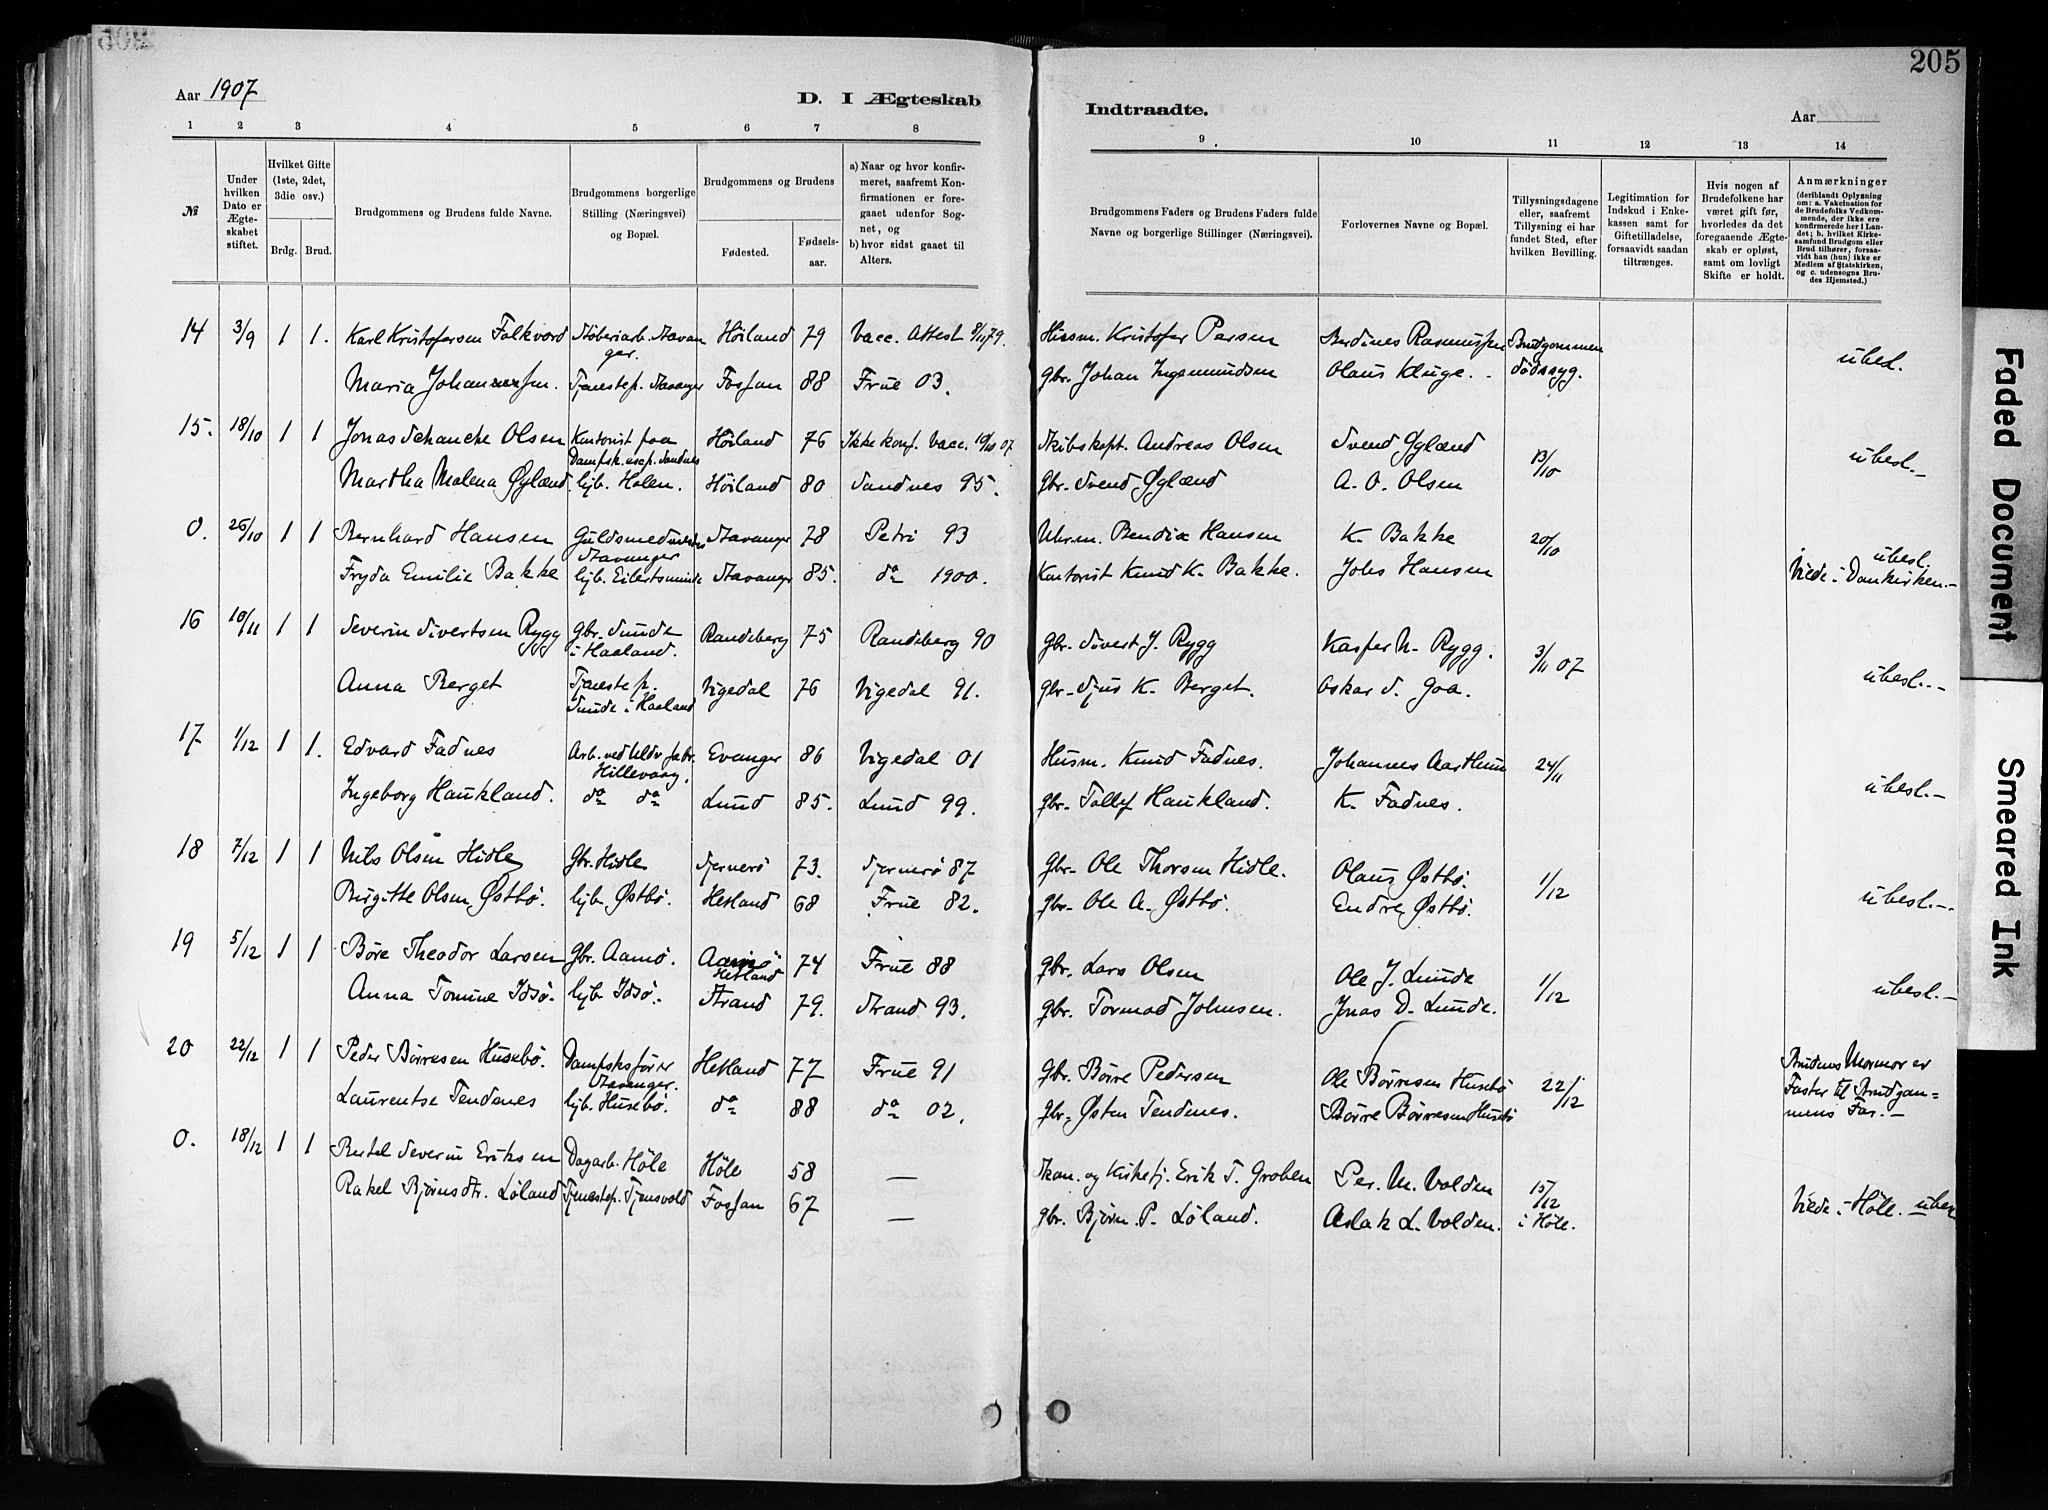 205
Aar 1907
D. I Ægteskab
Indtraadte.
Aar
1 2 3 4 5 6 7 8 9 10 11 12 13 14
№
Under hvilken Dato er Ægteskabet stiftet.
Hvilket Gifte (1ste, 2det, 3die osv.)
Brdg. Brud.
Brudgommens og Brudens fulde Navne.
Brudgommens borgerlige Stilling (Næringsvei) og Bopæl.
Brudgommens og Brudens
Fødested.
Fødselsaar.
a) Naar og hvor konfirmeret, saafremt Konfirmationen er foregaaet udenfor Sognet, og
b) hvor sidst gaaet til Alters.
Brudgommens Faders og Brudens Faders fulde Navne og borgerlige Stillinger (Næringsvei).
Forlovernes Navne og Bopæl.
Tillysningsdagene eller, saafremt Tillysning ei har fundet Sted, efter hvilken Bevilling.
Legitimation for Indskud i Enkekassen samt for Giftetilladelse, forsaavidt saadan tiltrænges.
Hvis nogen af Brudefolkene har været gift før, hvorledes da det foregaaende Ægteskab er opløst, samt om lovligt Skifte er holdt.
Anmærkninger (deriblandt Oplysning om: a. Vakcination for de Brudefolks Vedkommende, der ikke ere konfirmerede her i Landet; b. hvilket Kirkesamfund Brudgom eller Brud tilhører, forsaavidt han (hun) ikke er Medlem af Statskirken, og c. udensogns Brudes Hjemsted.)
14 3/9 1 1. Karl Kristofersen Falkvord Støberiarb. Stavanger. Höiland 79 Vacc. Attest 8/11 79. Husm. Kristofer Persen Berdines Rasmussen Brudgommen dödssyg. ubesl.
Maria Johannessen. Tjenestep. Stavanger Fossan 88 Frue 03. Gbr. Johan Ingemundsen Olaus Kluge.
15. 18/10 1 1 Jonas Schancke Olsen Kontorist paa Dampsk.exp. Sandnes Höiland 76 Ikke konf. Vacc. 19/10 07 Skibskapt. Andreas Olsen Svend Gylænd 13/10 ubesl.-
Martha Malena Gylænd. hjb. Holen. Höiland 80 Sandnes 95. Gbr. Svend Gylænd A. O. Olsen
0. 26/10 1 1 Bernhard Hansen Guldsmedmester Stavanger Stavanger 78 Petri 93 Uhrm. Bendix Hansen K. Bakke 20/10 ubesl.
Fryda Emilie Bakke hjb. Eilertsminde Stavanger 85. do 1900. Kontorist Knud K. Bakke. Johs Hansen Viede i Domkirken.-
16 10/11 1 1 Severin Sivertsen Rygg gbr. Sunde i Haaland. Randeberg 75 Randeberg 90 gbr. Sivert J. Rygg Kasper N. Rygg. 3/11 07 ubesl.-
Anna Berget Tjenestep. Sunde i Haaland Vigedal 76 Vigedal 91. gbr. Sjus K. Berget. Oskar S. Goa.
17 1/12 1 1. Edvard Fadnes Arb. ved Uldv.fabr. Hillevaag. Evanger 86 Vigedal 01 Husm. Knud Fadnes. Johannes Aarthun 24/11 ubesl.-
Ingeborg Haukland. do do Lund 85. Lund 99. gbr. Tollef Haukland. K. Fadnes.
18 7/12 1 1 Nils Olsen Hidle Gbr. Hidle Sjernerö 73. Sjernerö 87 gbr. Ole Thorsen Hidle. Olaus Østbö. 1/12 ubesl.-
Birgitte Olsen Østbö. hjb. Østbö. Hetland 68 Frue 82. gbr. Ole A. Østbö. Endre Østbö.
19 5/12 1 1 Böre Theodor Larsen gbr. Aamö. Aamö Hetland 74 Frue 88 gbr. Lars Olsen Ole J. Lunde 1/12 ubesl.-
Anna Tomine Idsö. hjb. Idsö. Strand 79. Strand 93. gbr. Tormod Johnsen. Jonas D. Lunde.
20 22/12 1 1 Peder Börresen Husebö. Dampsksfører Stavanger. Hetland 77 Frue 91 gbr. Böre Pedersen Ole Börresen Husebö 22/12 Brudens Mormor er Faster til Brudgommens Far.-
Laurentse Tendenes hjb. Husebö. do 88 do 02. gbr. Østen Tendenes. Börre Börresen Husebö
0. 18/12 1 1 Bertel Severin Eriksen Dagarb. Höle Höle 58 — Skom. og Kirketj. Erik T. Groben Per. M. Volden 15/12 i Höle. Viede i Höle. ubesl.
Rakel Bjørnsdtr. Löland Tjenestep. Tjensvold Fossan 67 — gbr. Bjørn P. Löland. Aslak L. Volden.
Faded Document
Smeared Ink